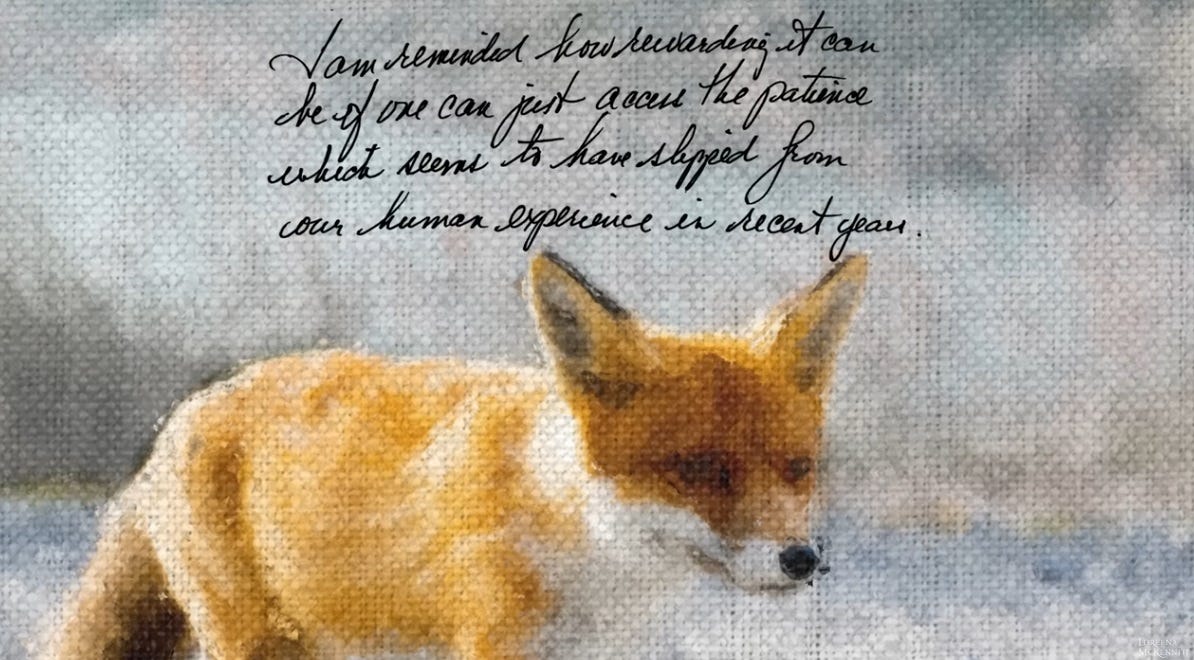 I am reminded how rewarding it can
be if one can just access the patience
which seems to have slipped from
our human experience in recent years.
LOREENA
MCKENNITT